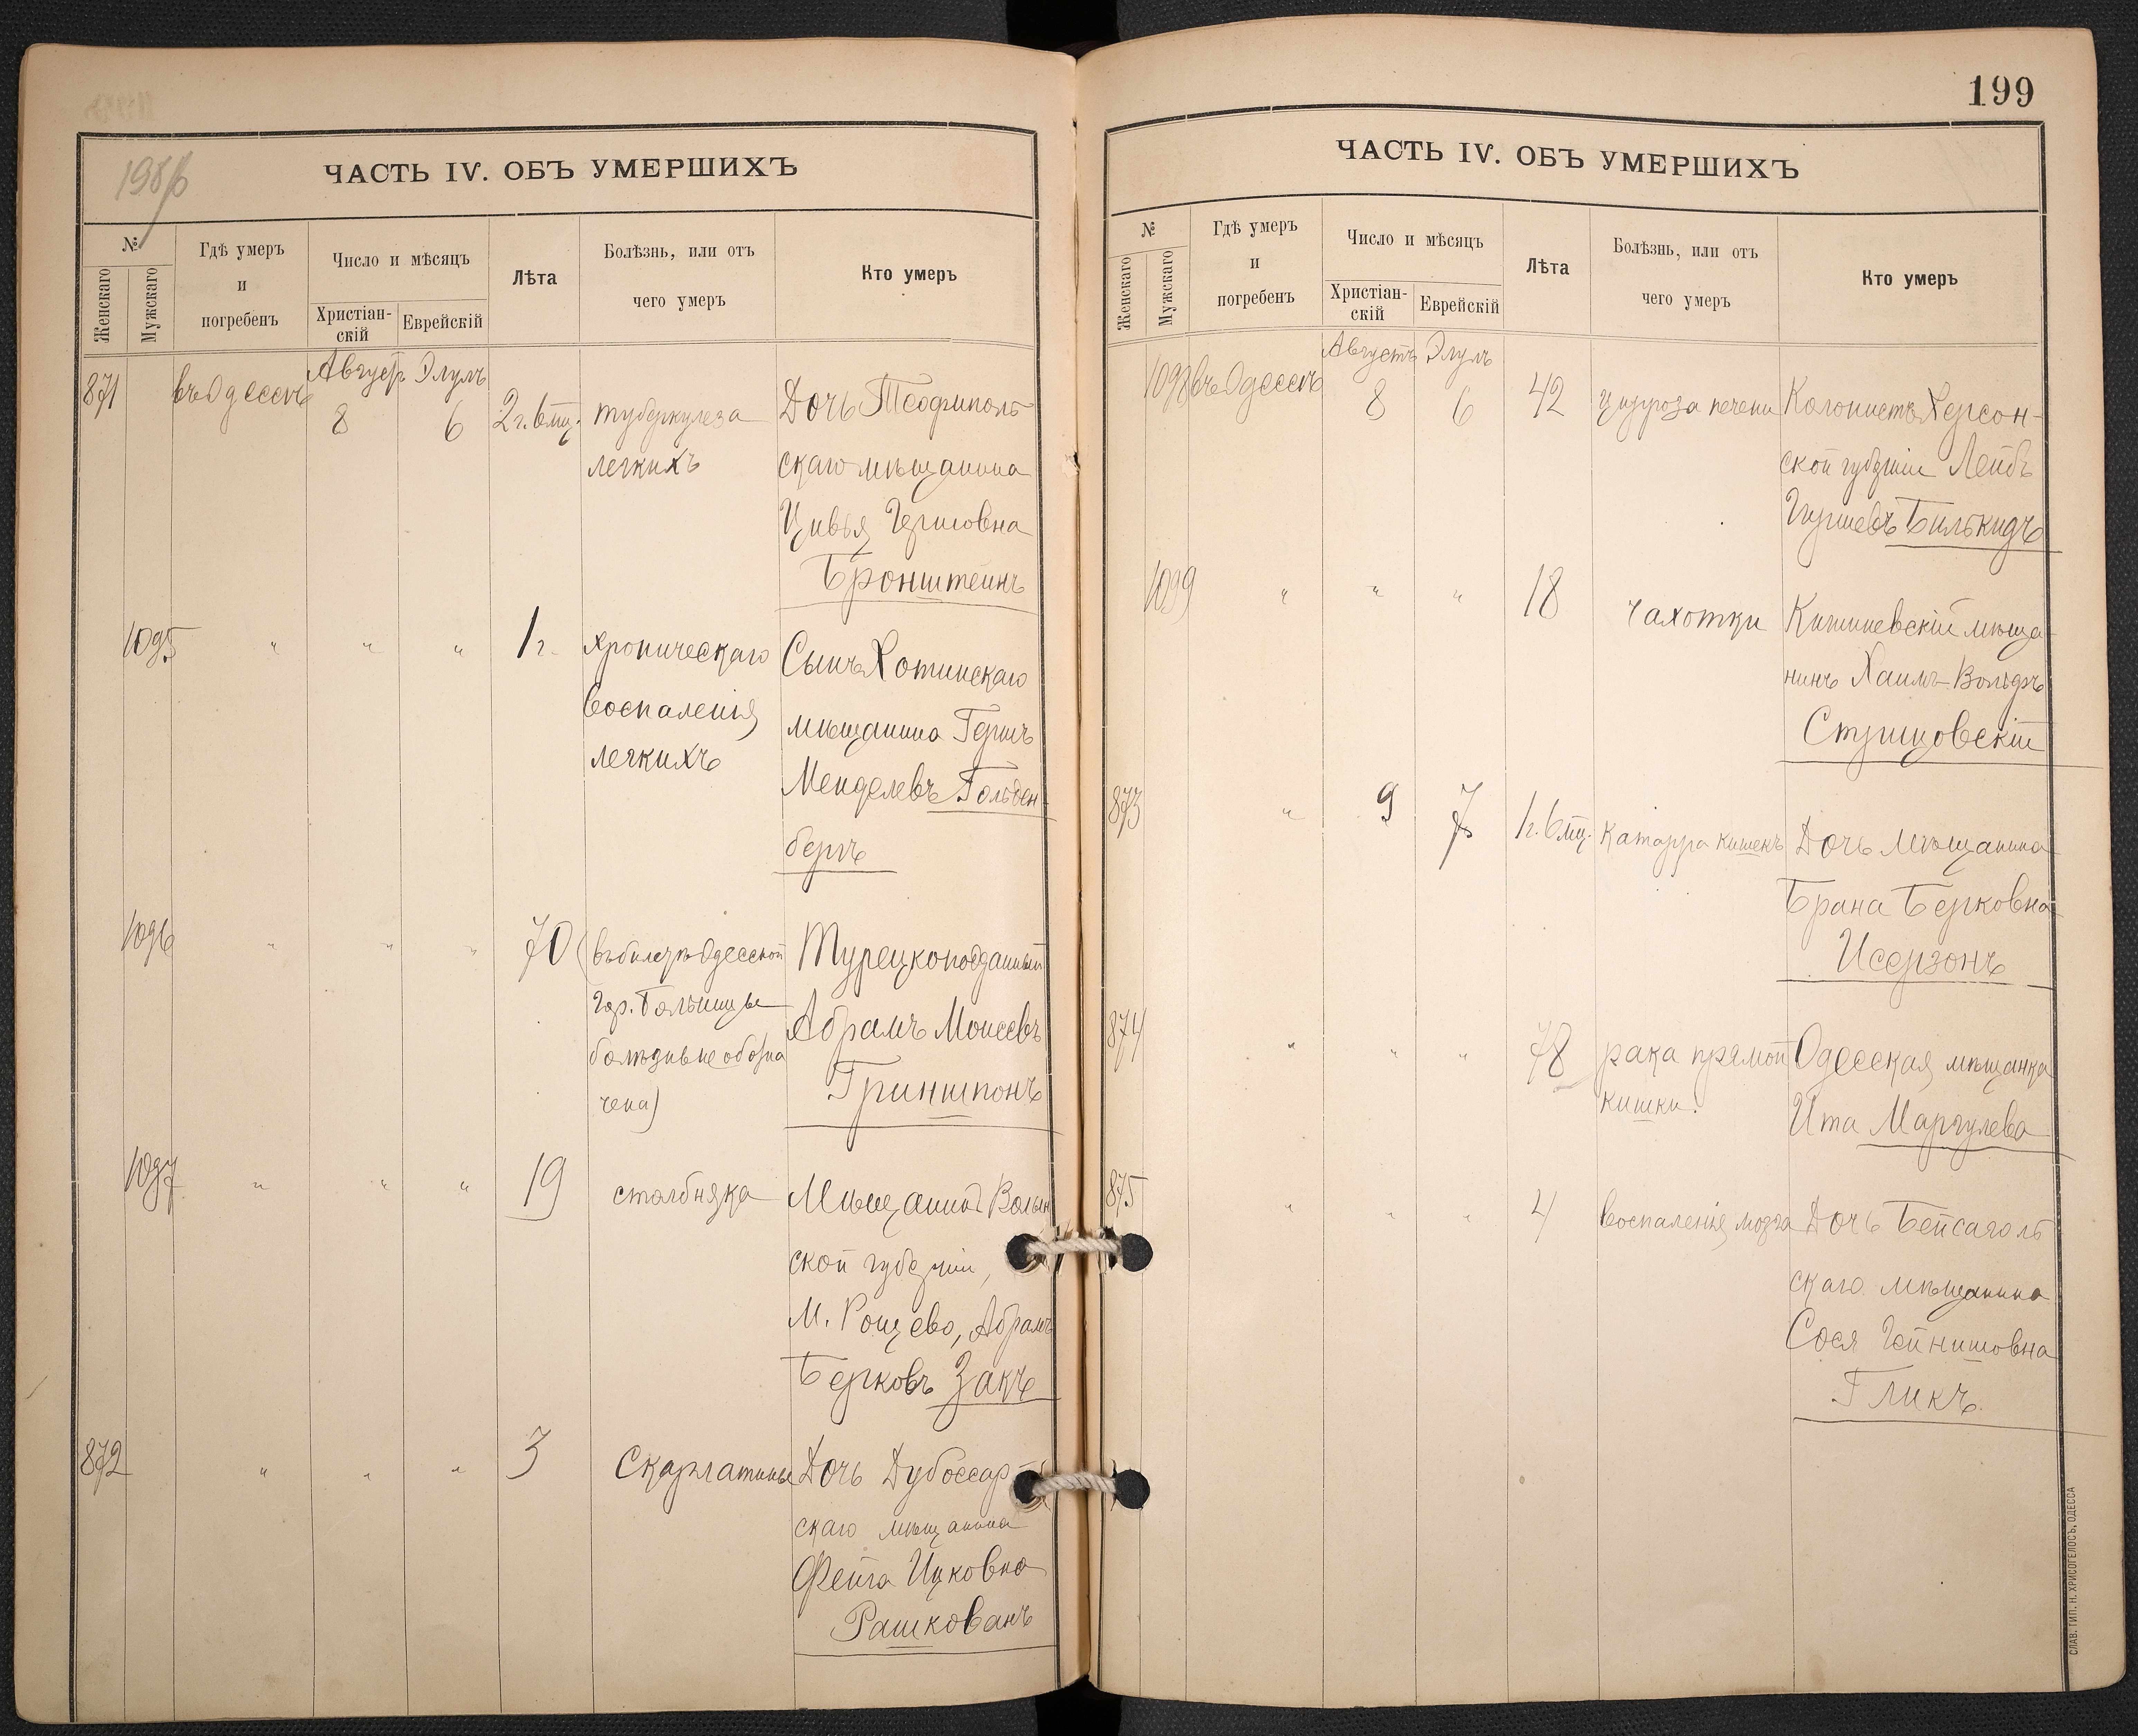 198/б
ЧАСТЬ IV. ОБЪ УМЕРШИХЪ
№
Женскаго
Мужскаго
Гдѣ умеръ
и
погребенъ
Число и мѣсяцъ
Христіан-
скій
Еврейскій
Лѣта
Болѣзнь, или отъ
чего умеръ
Кто умеръ
871
въ Одессѣ
Августъ Элулъ
8 6
2 г. 6 мц.
туберкулеза
легкихъ
Дочь Теофиполь
скаго мѣщанина
Цивья Гершовна
Бронштейнъ
1095 " " " 1 г.
хроническаго
воспаленія
легкихъ
Сынъ Хотинскаго
мѣщанина Гершъ
Менделевъ Гольден-
бергъ
1096 " " " 70
(въ билетѣ Одесской
Гор. Больницы
болѣзнь не обозна
чена)
Турецкоподданный
Абрамъ Моисеевъ
Гриншпонъ
1097 " " " 19
столбняка
Мѣщанинъ Волын
ской губерніи,
М. Рощево, Абрамъ
Берковъ Закъ
872 " " " 3
Скарлатины
Дочь Дубоссар-
скаго мѣщанина
Фейга Ицковна
Рашкованъ
199
ЧАСТЬ IV. ОБЪ УМЕРШИХЪ
№
Женскаго
Мужскаго
Гдѣ умеръ
и
погребенъ
Число и мѣсяцъ
Христіан-
скій
Еврейскій
Лѣта
Болѣзнь, или отъ
чего умеръ
Кто умеръ
1098 въ Одессѣ
Августъ Элулъ
8 6 42
цирроза печени
Колонистъ Херсон-
ской губерніи Лейбъ
Гиршевъ Билькидъ
1099 " " " 18
чахотки
Кишиневскій мѣща
нинъ Хаимъ-Вольфъ
873 " 9 7 1 г. 6 мц.
катарра кишекъ
Дочь мѣщанина
Брана Берковна
Исерзонъ
874 " " " 78
рака прямой
кишки.
Одесская мѣщанка
Ита Маргулева
875 " " " 4
воспаленія мозга
Дочь Бейсаголь
скаго мѣщанина
Сося Гейнишовна
Гликъ.
СЛАВ. ТИП. Н. ХРИСОГЕЛОСЪ, ОДЕССА